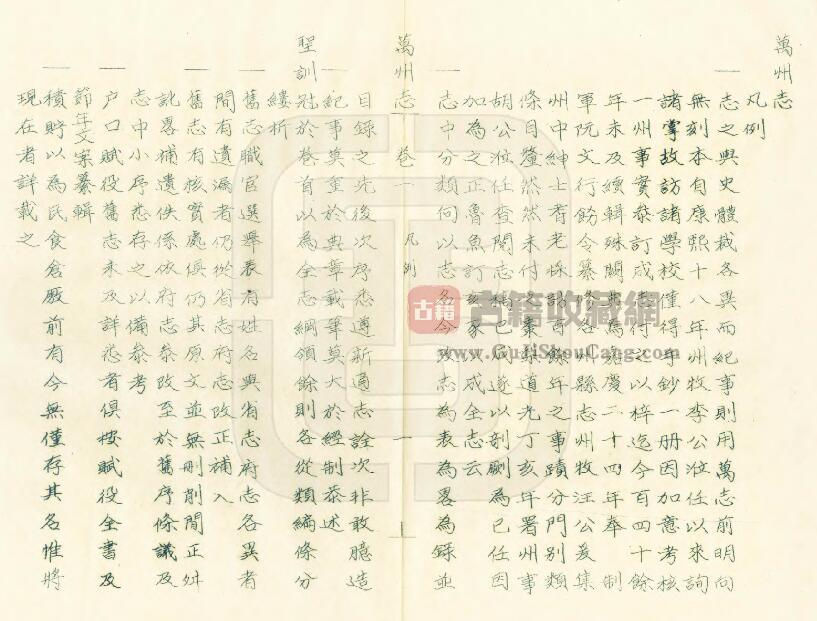 萬州志
凡例
一志之與史體裁各異而紀事則用萬志前明向
無刻本自康熙十八年州牧李公涖任以來詢
諸掌故訪諸學校僅得手鈔一册因加意考核
一州事實叅訂成志行之以梓迄今百四十餘
年未及續輯殊闕為慶二十四年奉制
軍阮文行飭令纂修各州縣志州牧汪公爰集
州中紳士耆老採訪百餘年之事蹟分門别類
條目釐然然未付之棗梨道光丁亥年署州事
胡公涖任查閱志稿已成遂以剞劂為己任因
加為之正魯魚訂亥豕成全志云
一志中分類向以志名今志為表為畧為錄並
萬州志 卷一 凡例 一
目錄之先後次序悉遵新通志詮次非敢臆造
一紀事莫重於典章載筆莫大於經制恭述
聖訓冠於卷首以為全志綱領餘則各從類編條分
縷析
一舊志職官選舉表有姓名與省志府志各異者
間有遺漏者仍從省志府志改正補入
一舊志有核實處俱仍其原文並無刪削間正舛
訛畧補遺佚係依府志叅改至於舊序條議及
志中小序悉存之以備叅考
一户口賦役舊志未及詳悉者俱按賦役全書及
節年文案纂輯
一積貯以為民食倉厫前有今無僅存其名惟將
現在者詳載之
古籍
古籍收藏網
www.GuJiShouCang.com